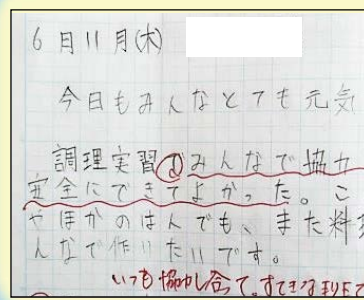 6日11月(木)
今日もみんなとても元気
調理実習のみんなで協力
安全にできてよかった。こ
やほかのはんでも、また料
んなで作りたいです。
いつも協力し合って、すてきな